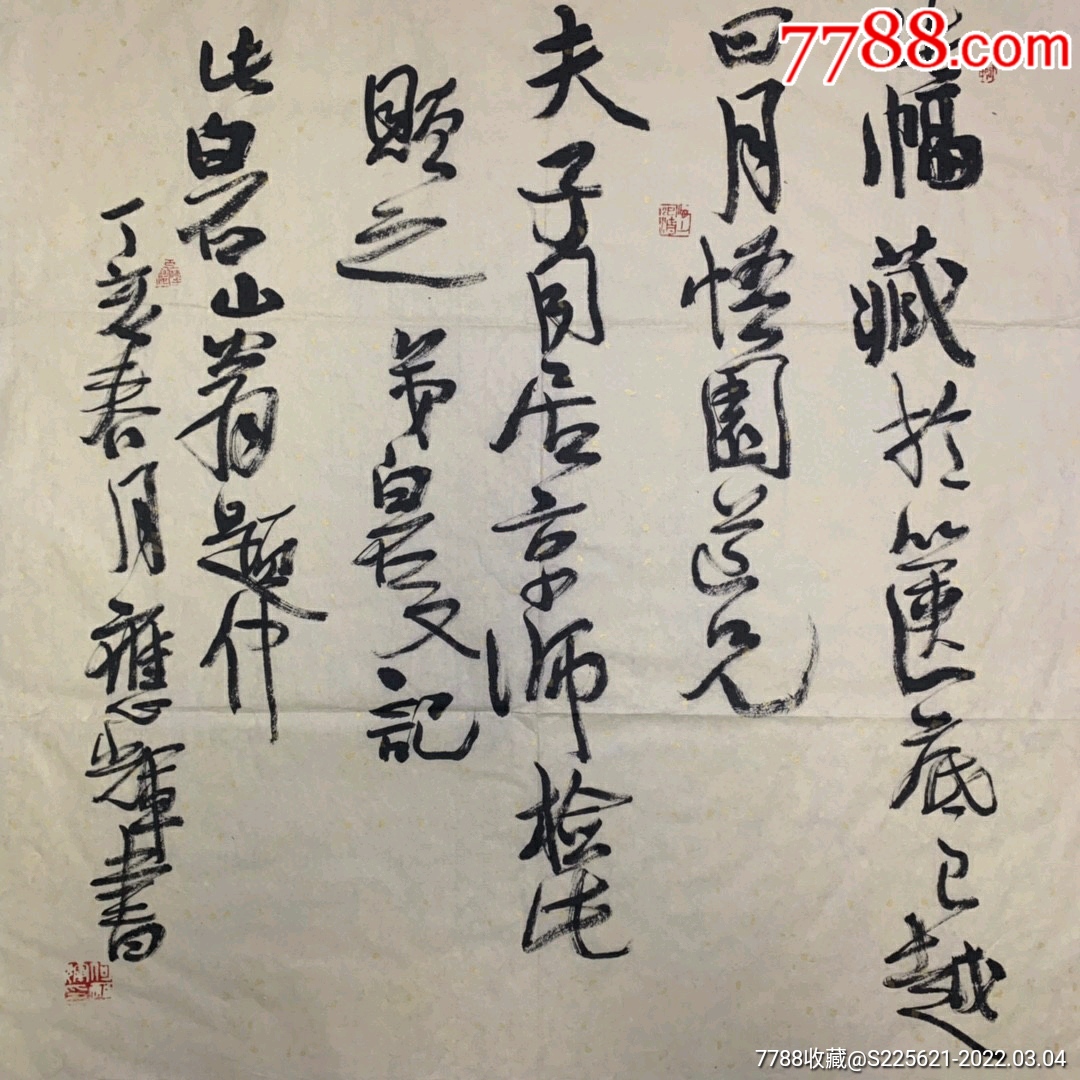 幅藏於篋底已越
四月悟園道兄
夫子同居京師檢此
贈之 弟白石又記
此白石山翁題
丁亥春月應輝書
7788.com
7788收藏@S225621-2022.03.04